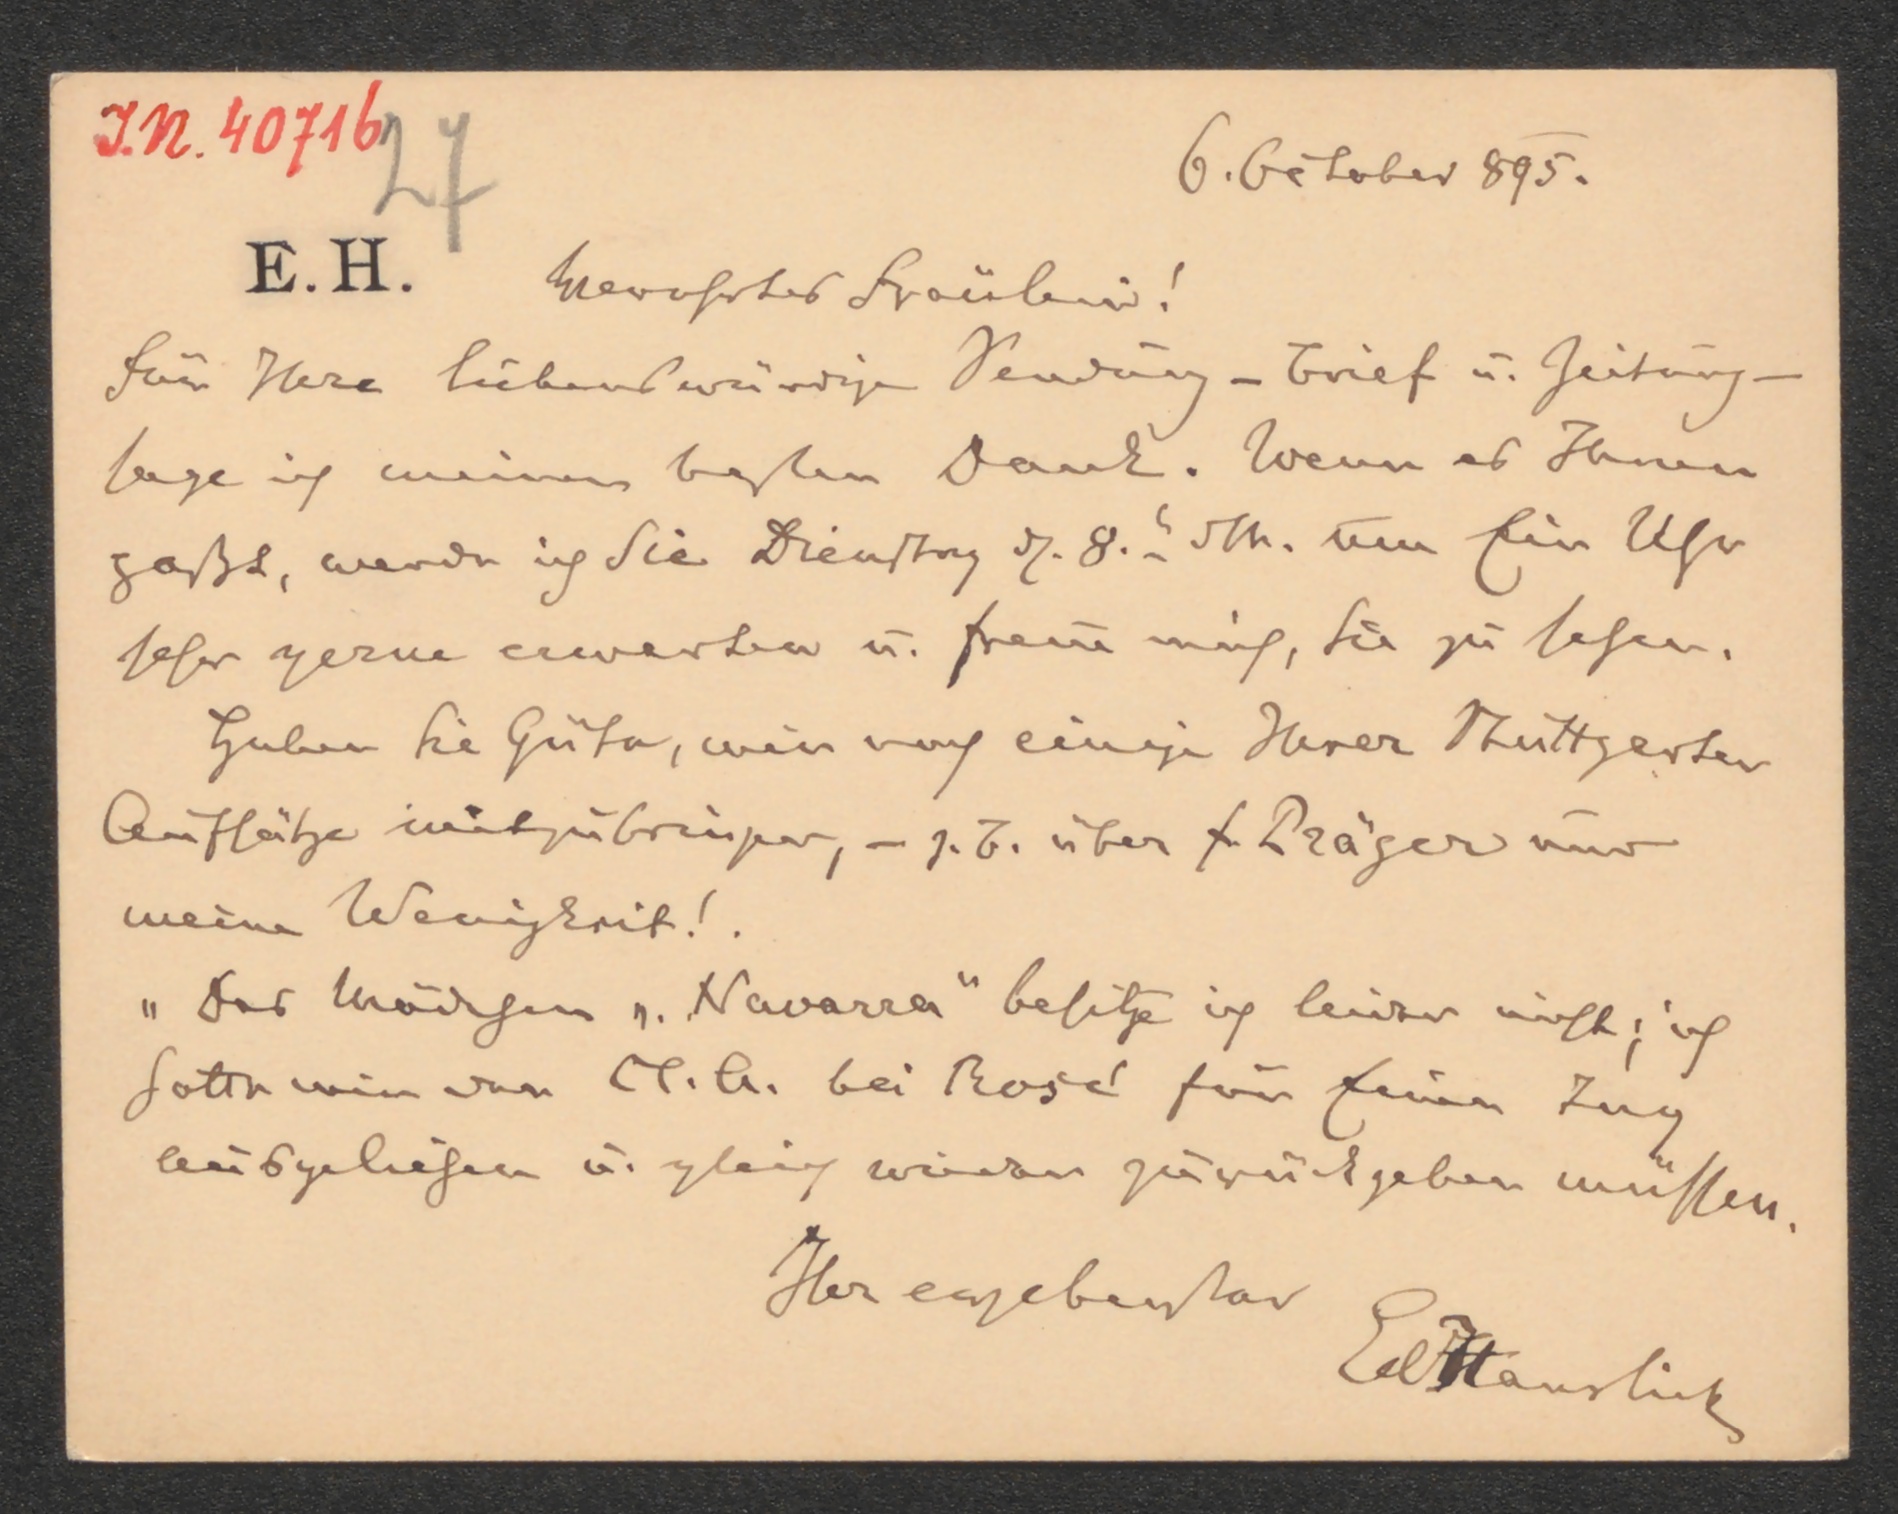 I.N. 40716
27
6. October 895.
E. H.
Verehrtes Fräulein!
Für Ihre liebenswürdige Sendung – Brief u. Zeitung –
sage ich meinen besten Dank. Wenn es Ihnen
paßt, werde ich Sie Dienstag d. 8. dM. um Ein Uhr
sehr gerne erwarten u. freue mich, Sie zu sehen.
Haben Sie Güte, mir noch einige Ihrer Stuttgarter
Aufsätze mitzubringen, – z. B. über F. Präger und
meine Wenigkeit!.
„Das Mädchen v. Navarra" besitze ich leider nicht; ich
hatte mir den Cl. A. bei Rosé für Einen Tag
ausgeliehen u. gleich wieder zurückgeben müssen.
Ihr ergebenster
Ed Hanslick